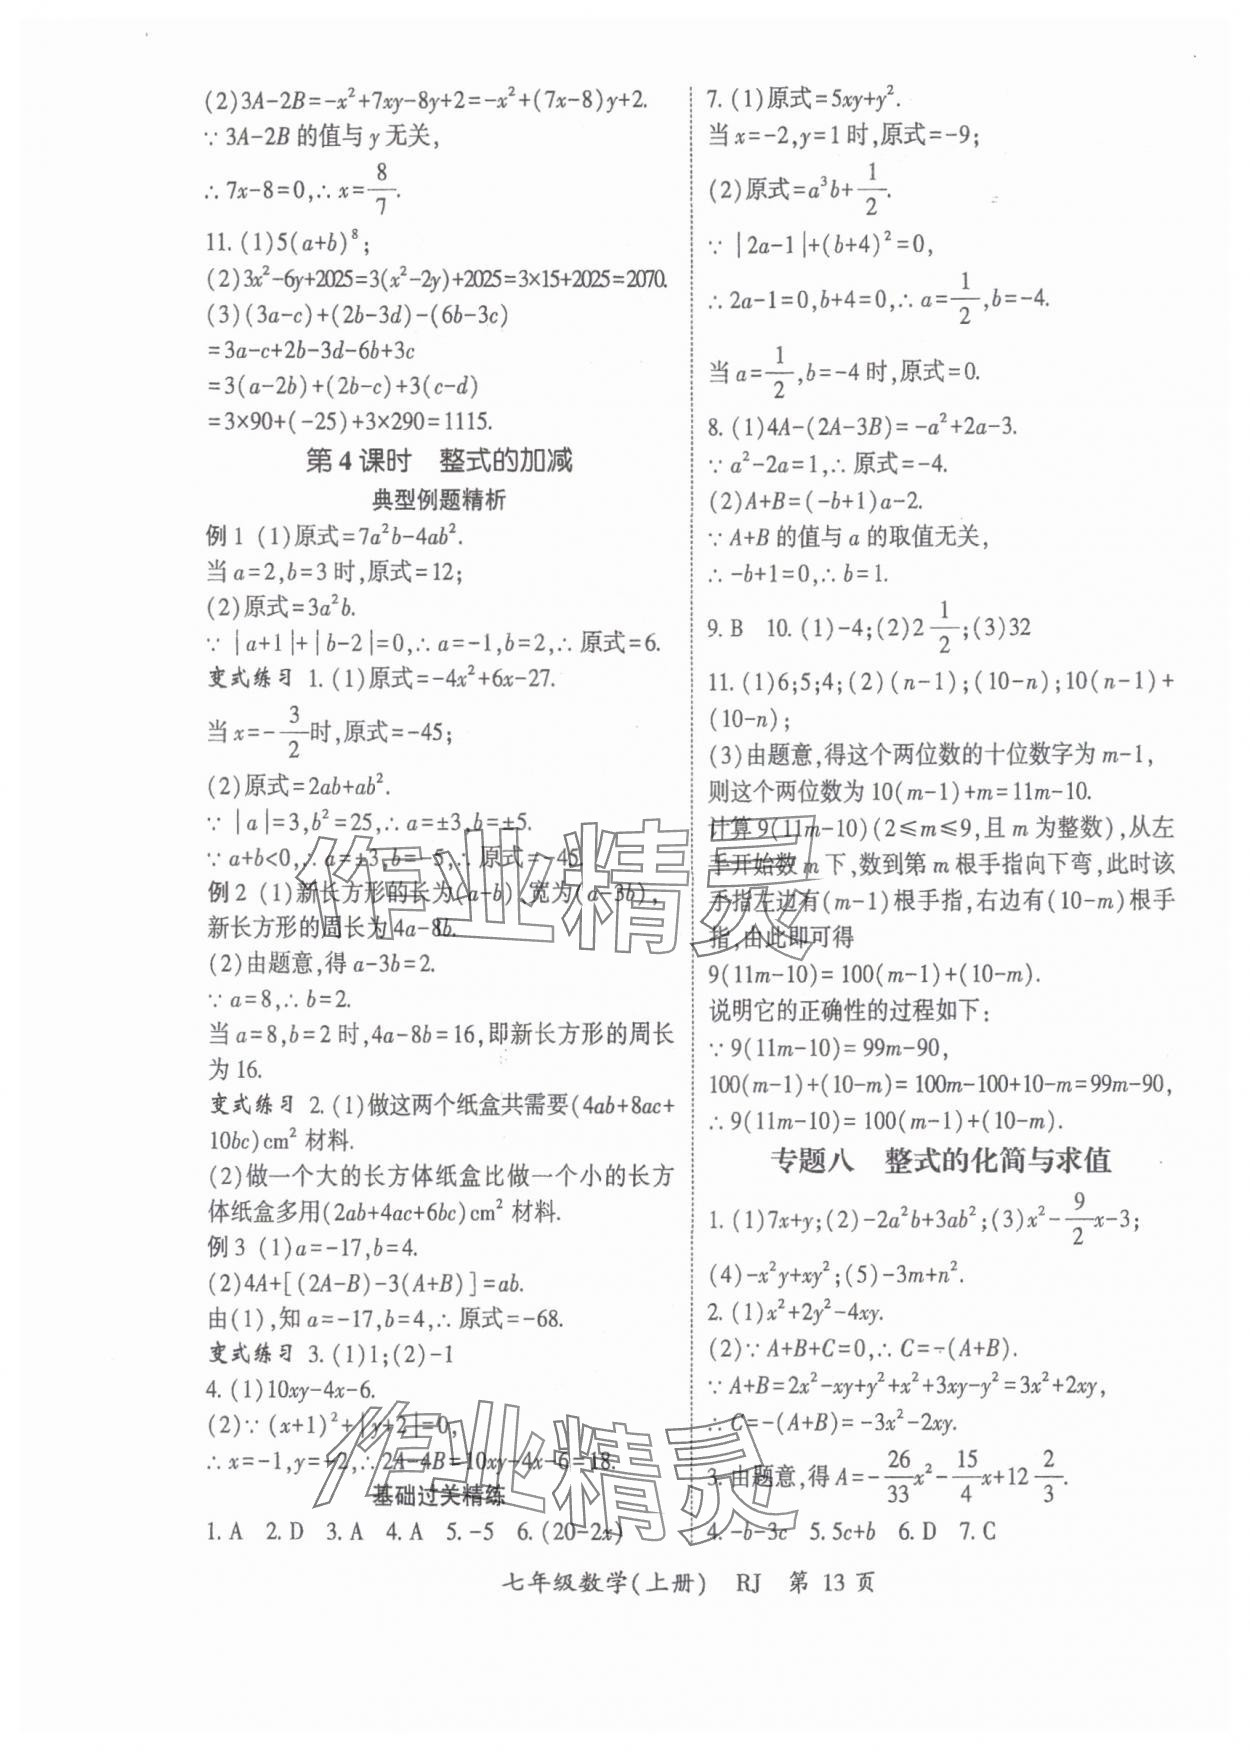 (2)3A-2B=-x²+7xy-8y+2=-x²+(7x-8)y+2.
∵ 3A-2B 的值与 y 无关,
∴ 7x-8=0,∴ x=8/7.
11. (1)5(a+b)⁸;
(2)3x²-6y+2025=3(x²-2y)+2025=3×15+2025=2070.
(3)(3a-c)+(2b-3d)-(6b-3c)
=3a-c+2b-3d-6b+3c
=3(a-2b)+(2b-c)+3(c-d)
=3×90+(-25)+3×290=1115.
第 4 课时 整式的加减
典型例题精析
例 1 (1)原式=7a²b-4ab².
当 a=2,b=3 时,原式=12;
(2)原式=3a²b.
∵ |a+1|+|b-2|=0,∴ a=-1,b=2,∴ 原式=6.
变式练习 1. (1)原式=-4x²+6x-27.
当 x=-3/2时,原式=-45;
(2)原式=2ab+ab².
∵ |a|=3,b²=25,∴ a=±3,b=±5.
∵ a+b<0,∴ a=±3,b=-5,∴ 原式=-45.
例 2 (1)新长方形的长为(a-b),宽为(a-3b),
新长方形的周长为 4a-8b.
(2)由题意,得 a-3b=2.
∵ a=8,∴ b=2.
当 a=8,b=2 时,4a-8b=16,即新长方形的周长
为 16.
变式练习 2. (1)做这两个纸盒共需要(4ab+8ac+
10bc)cm² 材料.
(2)做一个大的长方体纸盒比做一个小的长方
体纸盒多用(2ab+4ac+6bc)cm² 材料.
例 3 (1)a=-17,b=4.
(2)4A+[(2A-B)-3(A+B)]=ab.
由(1),知 a=-17,b=4,∴ 原式=-68.
变式练习 3. (1)1;(2)-1
4. (1)10xy-4x-6.
(2)∵ (x+1)²+|y+2|=0,
∴ x=-1,y=-2,∴ 2A-4B=10xy-4x-6=18.
基础过关精练
1. A 2. D 3. A 4. A 5. -5 6. (20-2x)
7. (1)原式=5xy+y².
当 x=-2,y=1 时,原式=-9;
(2)原式=a³b+1/2.
∵ |2a-1|+(b+4)²=0,
∴ 2a-1=0,b+4=0,∴ a=1/2,b=-4.
当 a=1/2,b=-4 时,原式=0.
8. (1)4A-(2A-3B)=-a²+2a-3.
∵ a²-2a=1,∴ 原式=-4.
(2)A+B=(-b+1)a-2.
∵ A+B 的值与 a 的取值无关,
∴ -b+1=0,∴ b=1.
9. B 10. (1)-4;(2)2 1/2;(3)32
11. (1)6;5;4;(2)(n-1);(10-n);10(n-1)+
(10-n);
(3)由题意,得这个两位数的十位数字为 m-1,
则这个两位数为 10(m-1)+m=11m-10.
计算 9(11m-10)(2≤m≤9,且 m 为整数),从左
手开始数 m 下,数到第 m 根手指向下弯,此时该
手指左边有(m-1)根手指,右边有(10-m)根手
指,由此即可得
9(11m-10)=100(m-1)+(10-m).
说明它的正确性的过程如下:
∵ 9(11m-10)=99m-90,
100(m-1)+(10-m)=100m-100+10-m=99m-90,
∴ 9(11m-10)=100(m-1)+(10-m).
专题八 整式的化简与求值
1. (1)7x+y;(2)-2a²b+3ab²;(3)x²-9/2x-3;
(4)-x²y+xy²;(5)-3m+n².
2. (1)x²+2y²-4xy.
(2)∵ A+B+C=0,∴ C=-(A+B).
∵ A+B=2x²-xy+y²+x²+3xy-y²=3x²+2xy,
∴ C=-(A+B)=-3x²-2xy.
3. 由题意,得 A=-26/33x²-15/4x+12 2/3.
4. -b-3c 5. 5c+b 6. D 7. C
七年级数学(上册) RJ 第 13 页
作业精灵
作业精灵